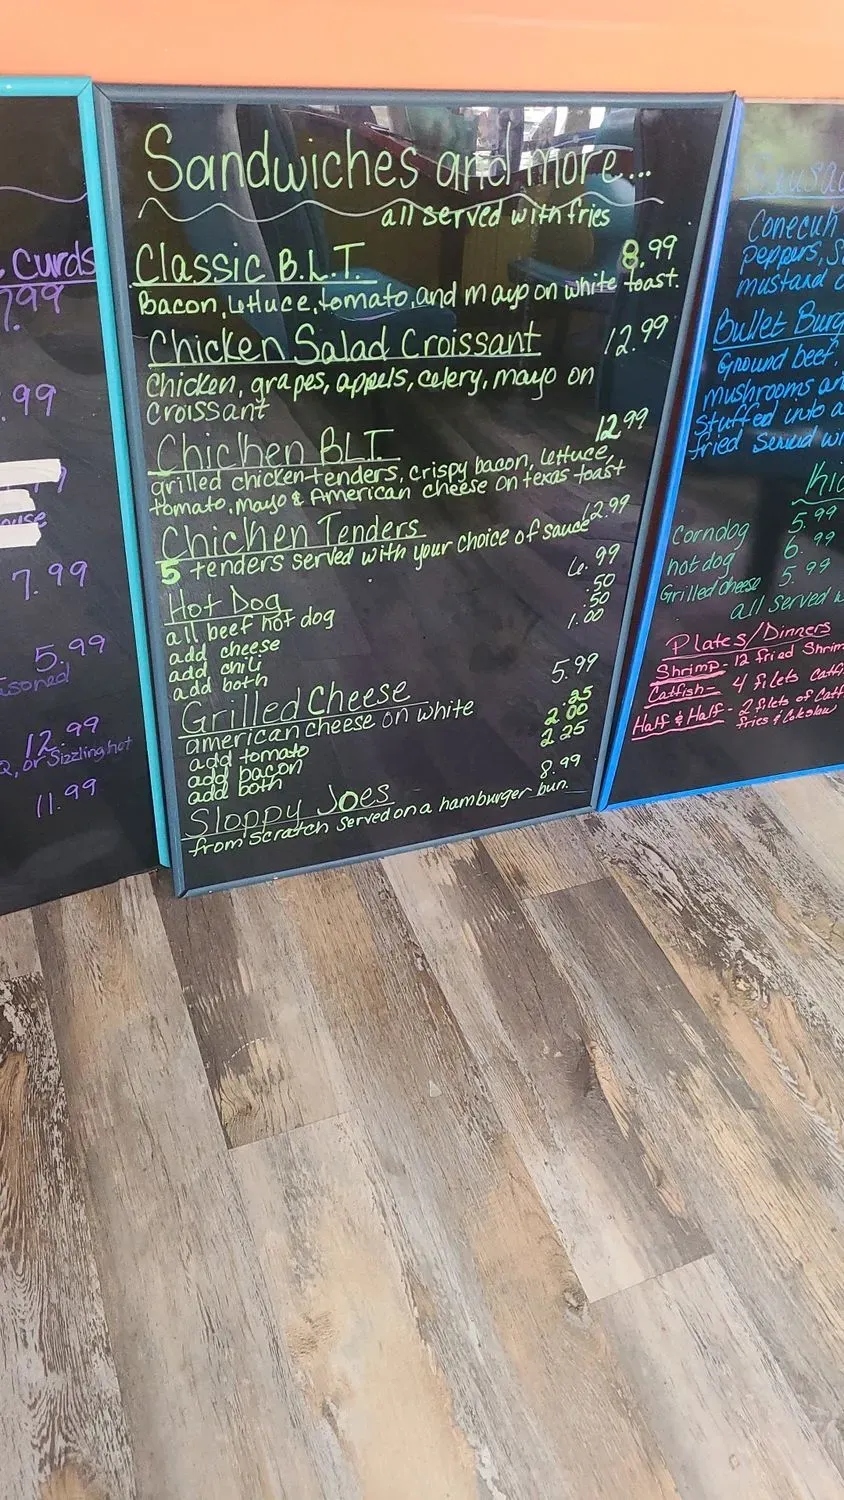 Curds
7.99
.99
7.99
5.99
soned
12.99
Q, or Sizzling hot
11.99
Sandwiches and more...
all served with fries
Classic B.L.T. 8.99
Bacon, lettuce, tomato, and mayo on white toast.
Chicken Salad Croissant 12.99
Chicken, grapes, appels, celery, mayo on
croissant
Chicken BLT. 12.99
grilled chicken tenders, crispy bacon, lettuce,
tomato, mayo & American cheese on texas toast
Chicken Tenders 12.99
5 tenders served with your choice of sauce
Hot Dog 6.99
all beef hot dog
add cheese .50
add chili .50
add both 1.00
Grilled Cheese 5.99
american cheese on white
add tomato .25
add bacon 2.00
add both 2.25
Sloppy Joes 8.99
from scratch served on a hamburger bun.
Conecuh
Peppers, S
mustard
Bullet Burg
Ground beef,
mushrooms an
stuffed into a
fried served wi
Corndog 5.99
hot dog 6.99
Grilled cheese 5.99
all served w
Plates/Dinners
Shrimp - 12 fried Shrim
Catfish - 4 filets Catfi
Half & Half - 2 filets of Catf
fries & Coleslaw